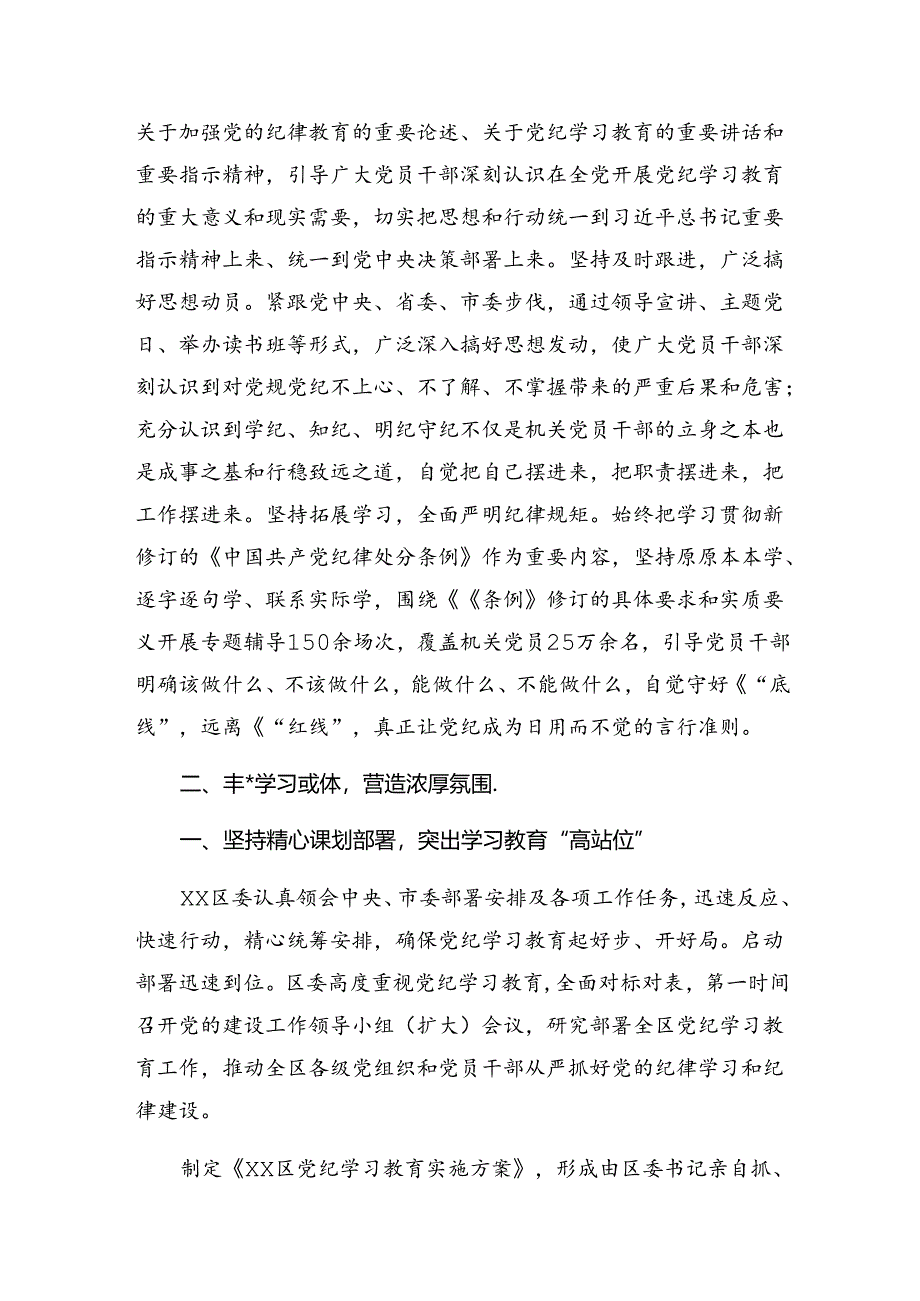 关于加强党的纪律教育的重要论述、关于党纪学习教育的重要讲话和
重要指示精神，引导广大党员干部深刻认识在全党开展党纪学习教育
的重大意义和现实需要，切实把思想和行动统一到习近平总书记重要
指示精神上来、统一到党中央决策部署上来。坚持及时跟进，广泛搞
好思想动员。紧跟党中央、省委、市委步伐，通过领导宣讲、主题党
日、举办读书班等形式，广泛深入搞好思想发动，使广大党员干部深
刻认识到对党规党纪不上心、不了解、不掌握带来的严重后果和危害；
充分认识到学纪、知纪、明纪守纪不仅是机关党员干部的立身之本也
是成事之基和行稳致远之道，自觉把自己摆进来，把职责摆进来，把
工作摆进来。坚持拓展学习，全面严明纪律规矩。始终把学习贯彻新
修订的《中国共产党纪律处分条例》作为重要内容，坚持原原本本学、
逐字逐句学、联系实际学，围绕《《条例》修订的具体要求和实质要
义开展专题辅导150余场次，覆盖机关党员25万余名，引导党员干部
明确该做什么、不该做什么，能做什么、不能做什么，自觉守好《“底
线”，远离《“红线”，真正让党纪成为日用而不觉的言行准则。
二、丰*学习或体，营造浓厚氛围.
一、坚持精心课划部署，突出学习教育“高站位”
XX区委认真领会中央、市委部署安排及各项工作任务，迅速反应、
快速行动，精心统筹安排，确保党纪学习教育起好步、开好局。启动
部署迅速到位。区委高度重视党纪学习教育，全面对标对表，第一时间
召开党的建设工作领导小组（扩大）会议，研究部署全区党纪学习教
育工作，推动全区各级党组织和党员干部从严抓好党的纪律学习和纪
律建设。
制定《XX区党纪学习教育实施方案》，形成由区委书记亲自抓、